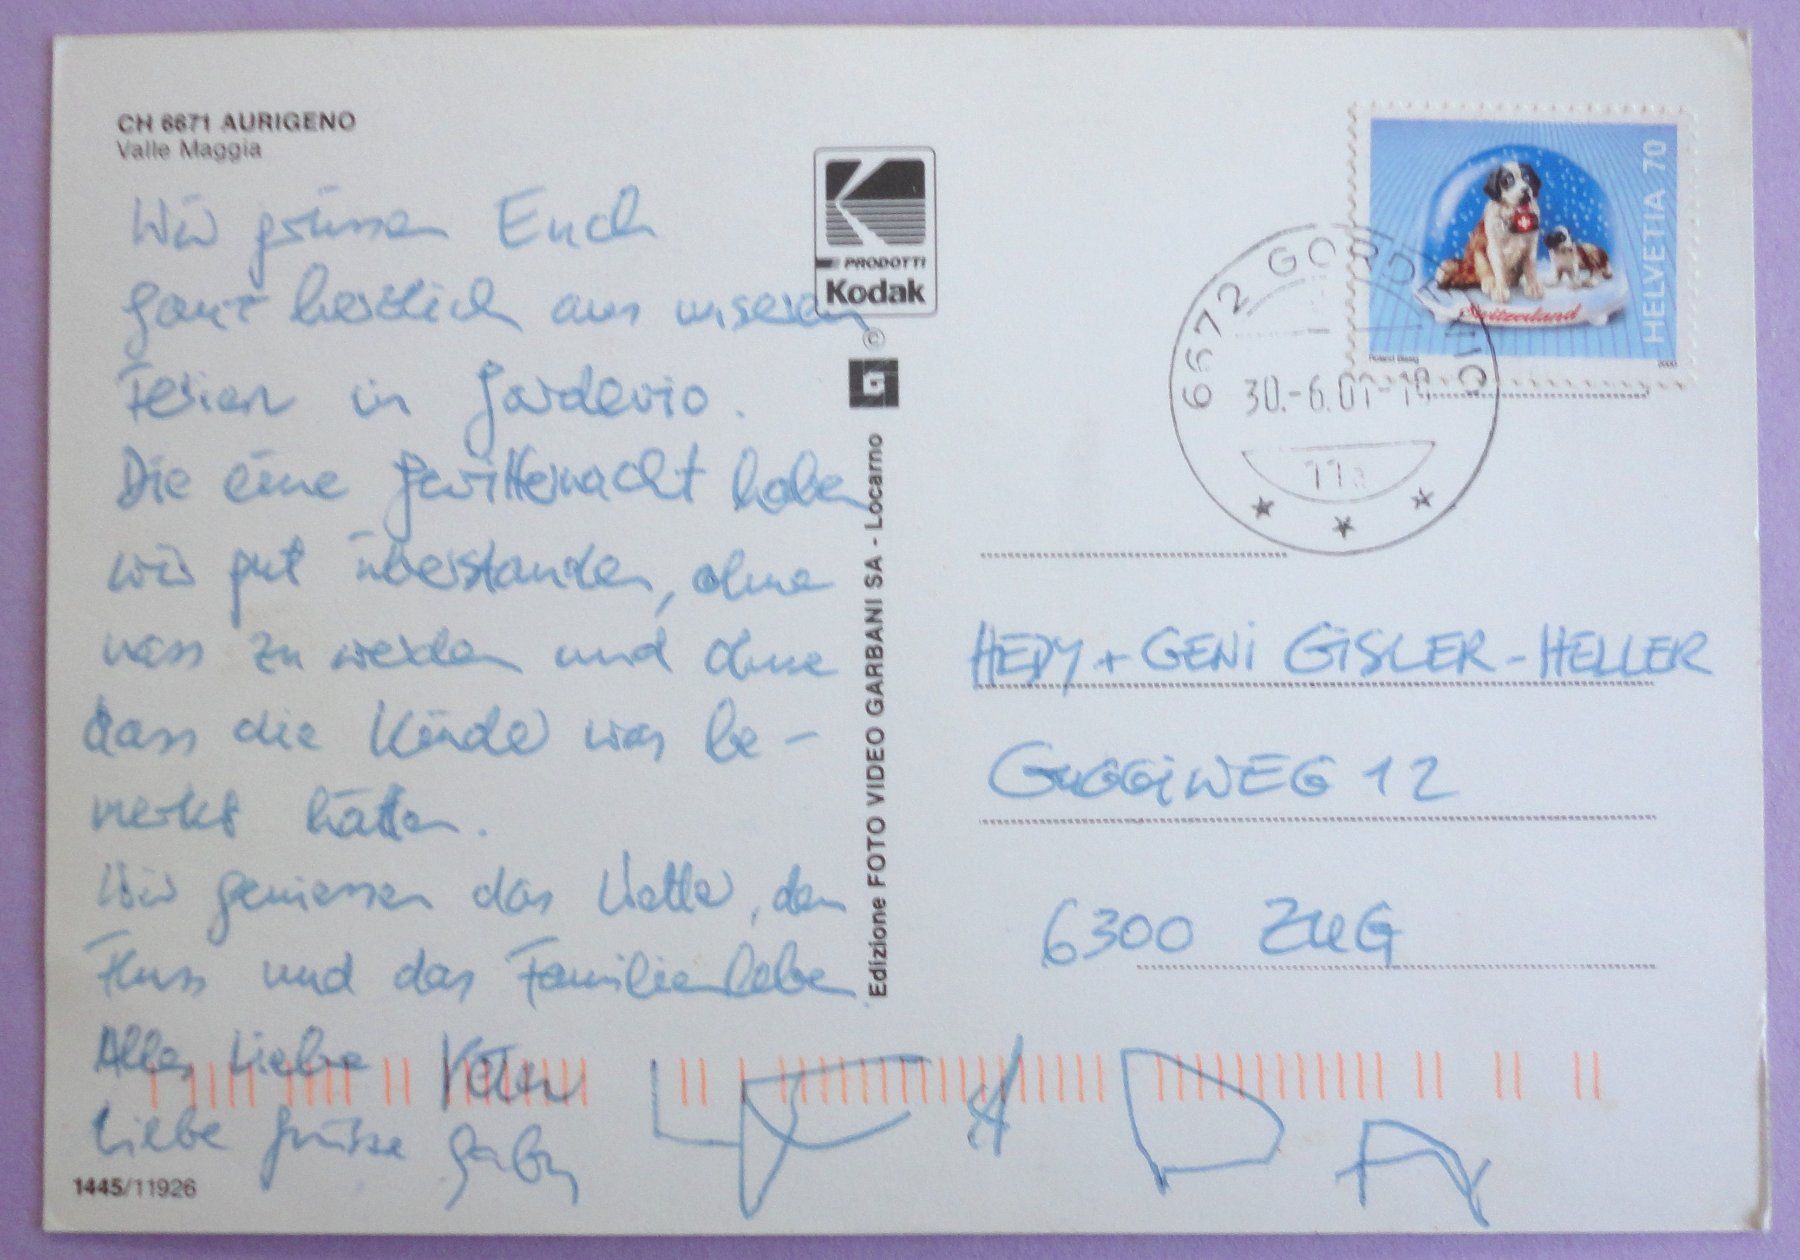 CH 6671 AURIGENO
Valle Maggia
Wir grüssen Euch
ganz herzlich aus unseren
Ferien in Gordevio.
Die eine Gewitternacht haben
wir gut überstanden, ohne
nass zu werden und ohne
dass die Kinder was be-
merkt hätten.
Wir geniessen das Wetter, den
Fluss und das Familienleben
Alles Liebe
Liebe Grüsse Gaby
1445/11926
PRODOTTI
Kodak
©
G
Edizione FOTO VIDEO GARBANI SA - Locarno
HELVETIA 70
Switzerland
2000
6672 GORDEVIO
30.-6.01-18
11a
HEDY + GENI GISLER-HELLER
GUGGiWEG 12
6300 ZUG